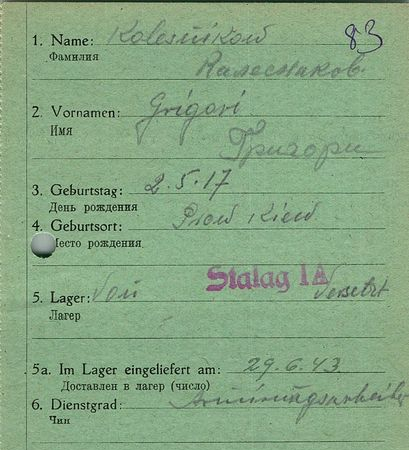 83
1. Name: Kolesnikow
Фамилия
Калесников
2. Vornamen: Grigori
Имя
Григори
3. Geburtstag: 2.5.17
День рождения
4. Geburtsort: Kiew
Место рождения
Stalag IA
5. Lager: Von Versetzt
Лагер
5a. Im Lager eingeliefert am: 29.6.43
Доставлен в лагер (число)
6. Dienstgrad: Armierungsarbeiter
Чин